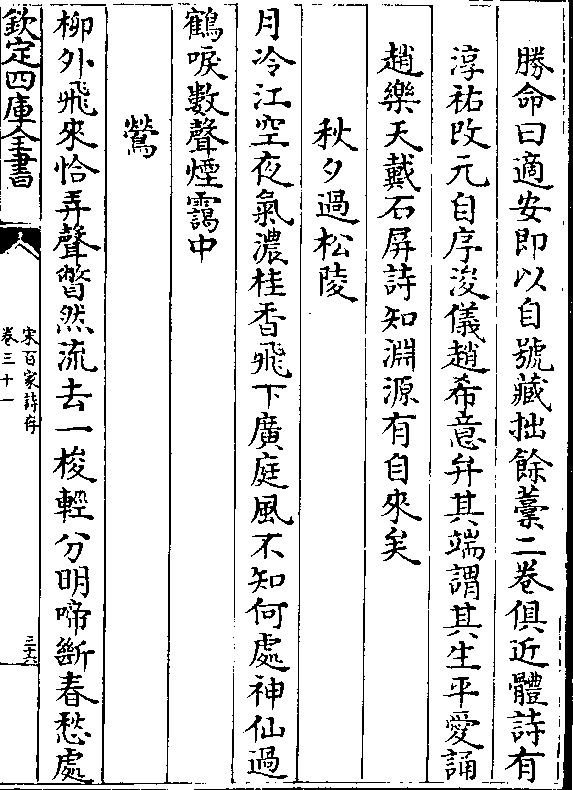 勝命曰適安即以自號藏拙餘藁二卷俱近體詩有
淳祐改元自序浚儀趙希意弁其端謂其生平愛誦
趙樂天戴石屏詩知淵源有自來矣
秋夕過松陵
月冷江空夜氣濃桂香飛下廣庭風不知何處神仙過
鶴唳数聲煙靄中
鶯
柳外飛來恰弄聲瞥然流去一梭輕分明啼斷春愁處
欽定四庫全書
宋百家詩存
卷三十一
三十六